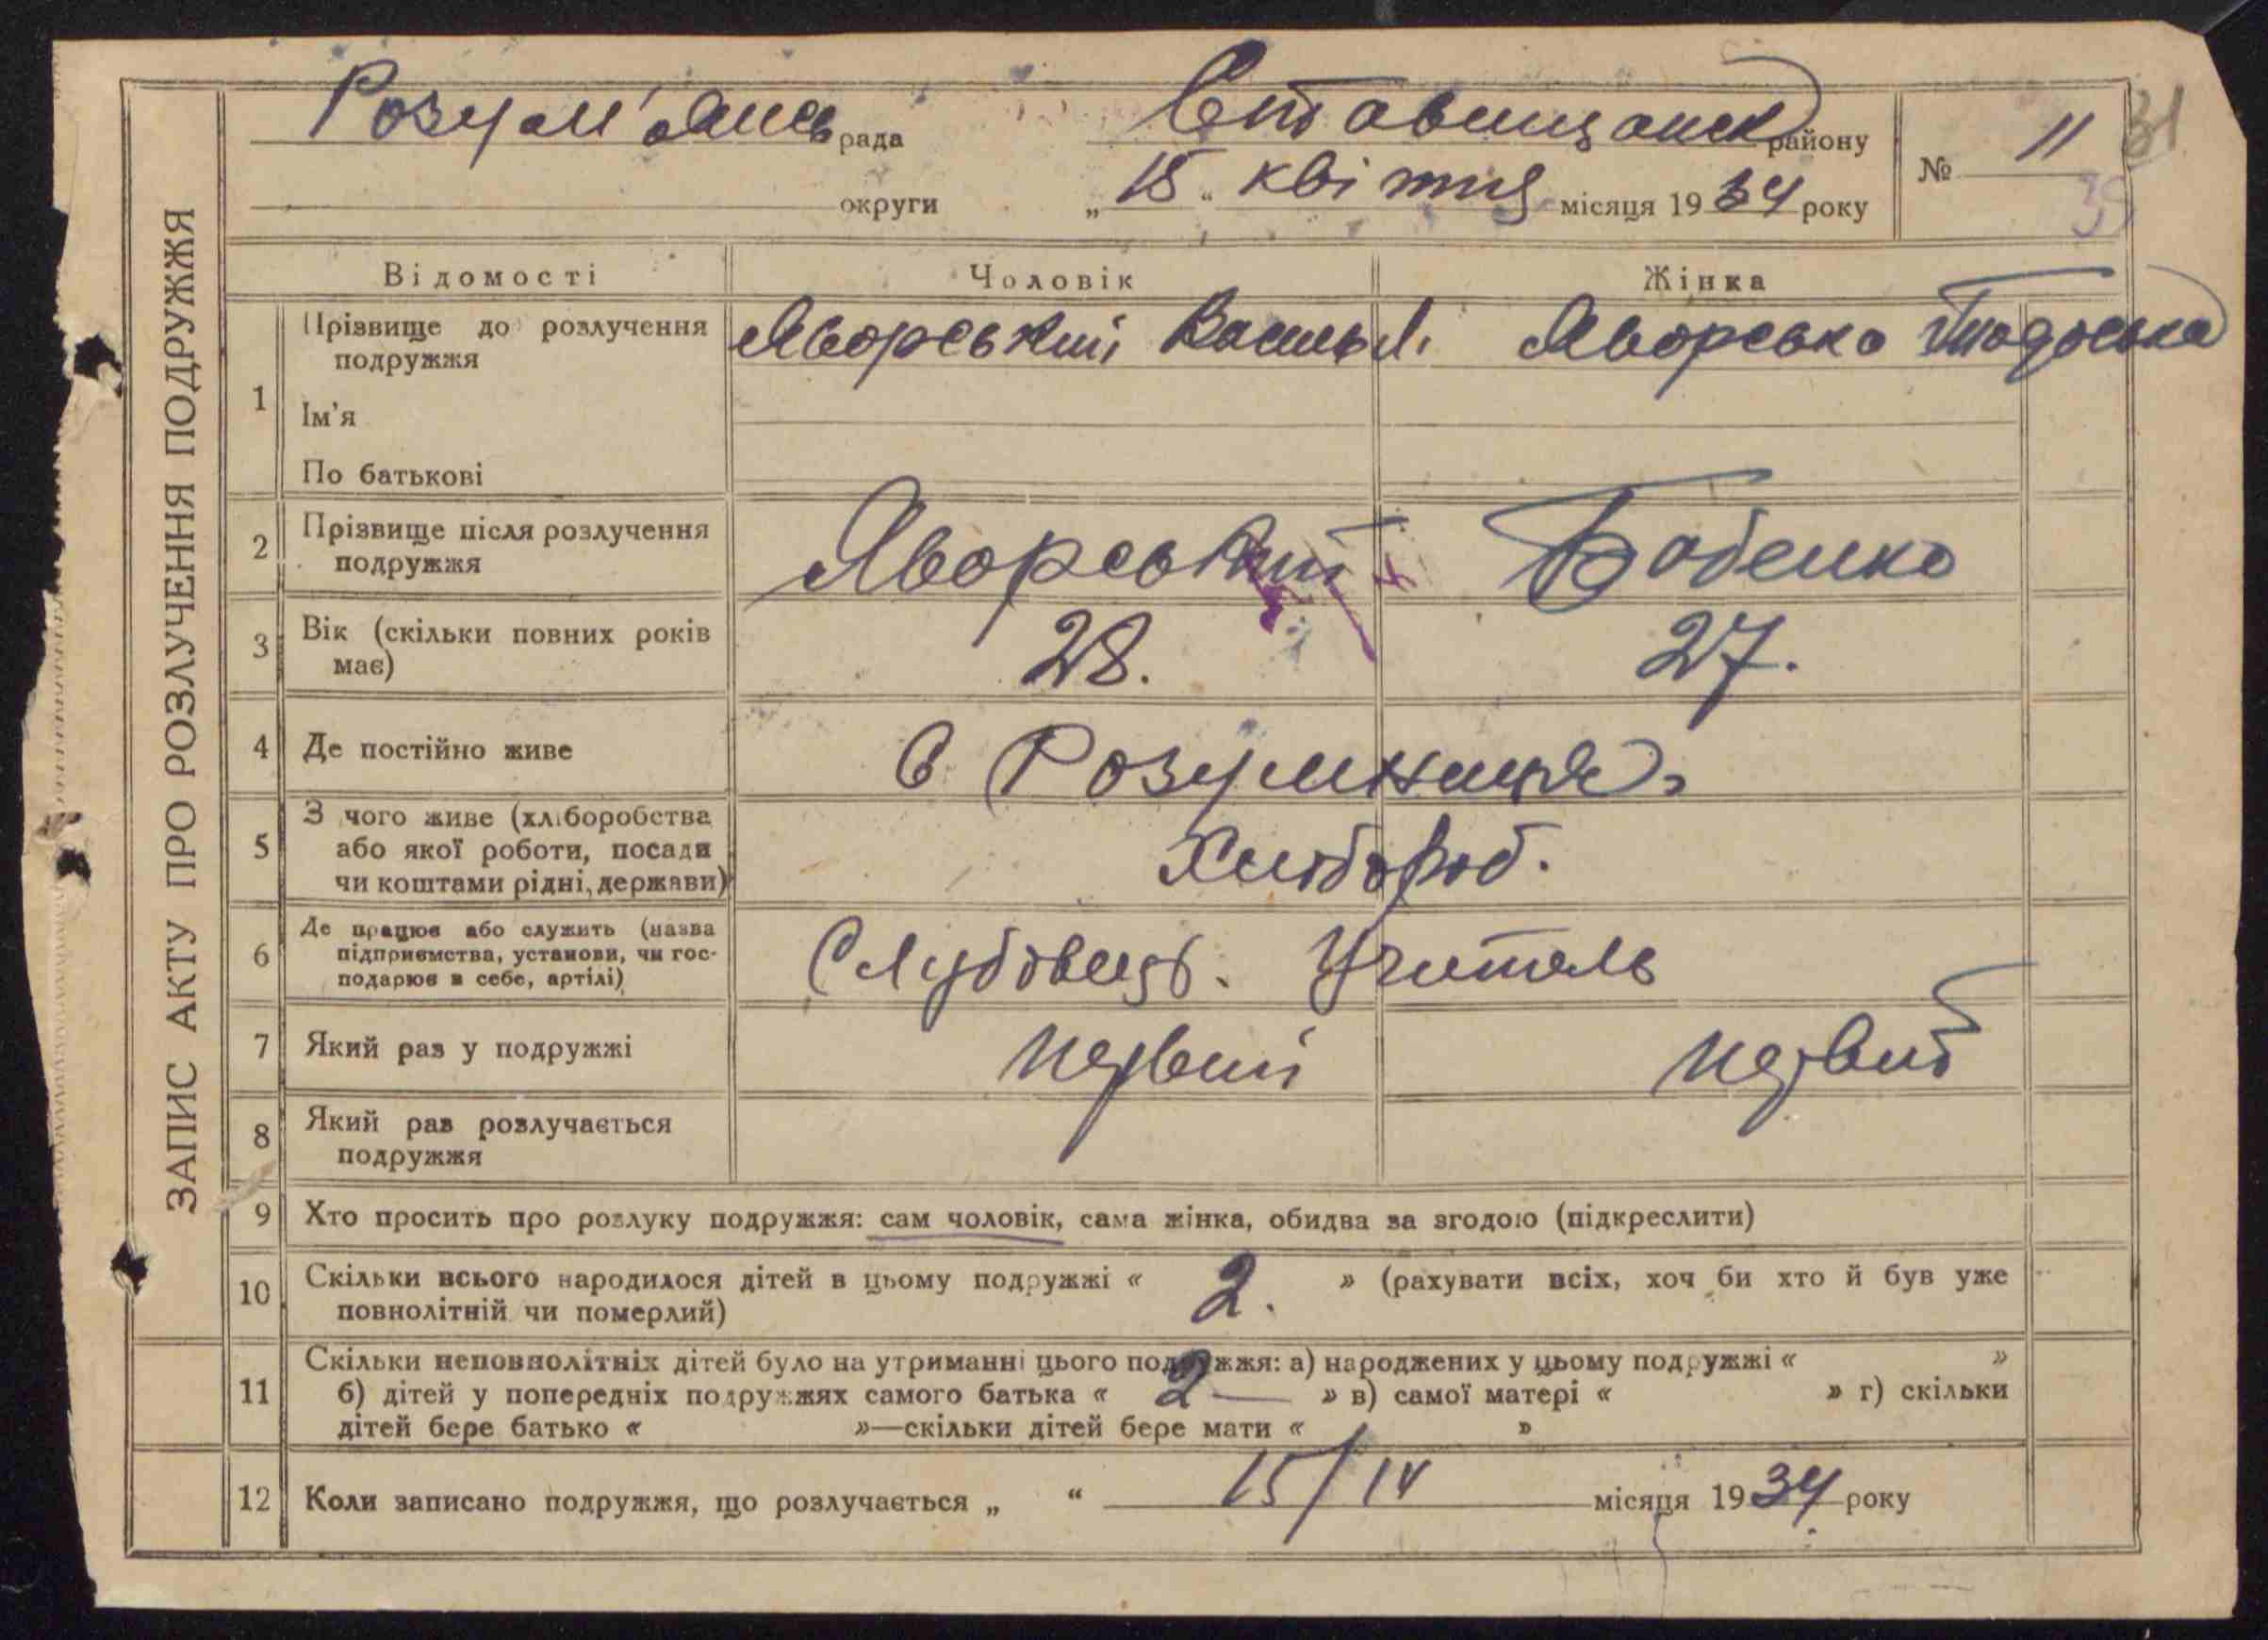 ЗАПИС АКТУ ПРО РОЗЛУЧЕННЯ ПОДРУЖЖЯ
рада Ставищанськ району
№ 11 31
39
округи „ 15 “ квітня місяця 1934 року
Відомості Чоловік Жінка
1 Прізвище до розлучення подружжя Яворський Василь Яворська Тодоська
Ім'я
По батькові
2 Прізвище після розлучення подружжя Яворський Бабенко
3 Вік (скільки повних років має) 28. 27.
4 Де постійно живе с Розумниця
5 З чого живе (хліборобства або якої роботи, посади чи коштами рідні, держави) Хлібороб.
6 Де працює або служить (назва підприємства, установи, чи господарює в себе, артілі) Учитель
7 Який раз у подружжі первий первий
8 Який раз розлучається подружжя
9 Хто просить про розлуку подружжя: сам чоловік, сама жінка, обидва за згодою (підкреслити)
10 Скільки всього народилося дітей в цьому подружжі « 2. » (рахувати всіх, хоч би хто й був уже
повнолітній чи померлий)
11 Скільки неповнолітніх дітей було на утриманні цього подружжя: а) народжених у цьому подружжі « »
б) дітей у попередніх подружжях самого батька « 2 — » в) самої матері « » г) скільки
дітей бере батько « »—скільки дітей бере мати « »
12 Коли записано подружжя, що розлучається „ “ 15/IV місяця 1934 року